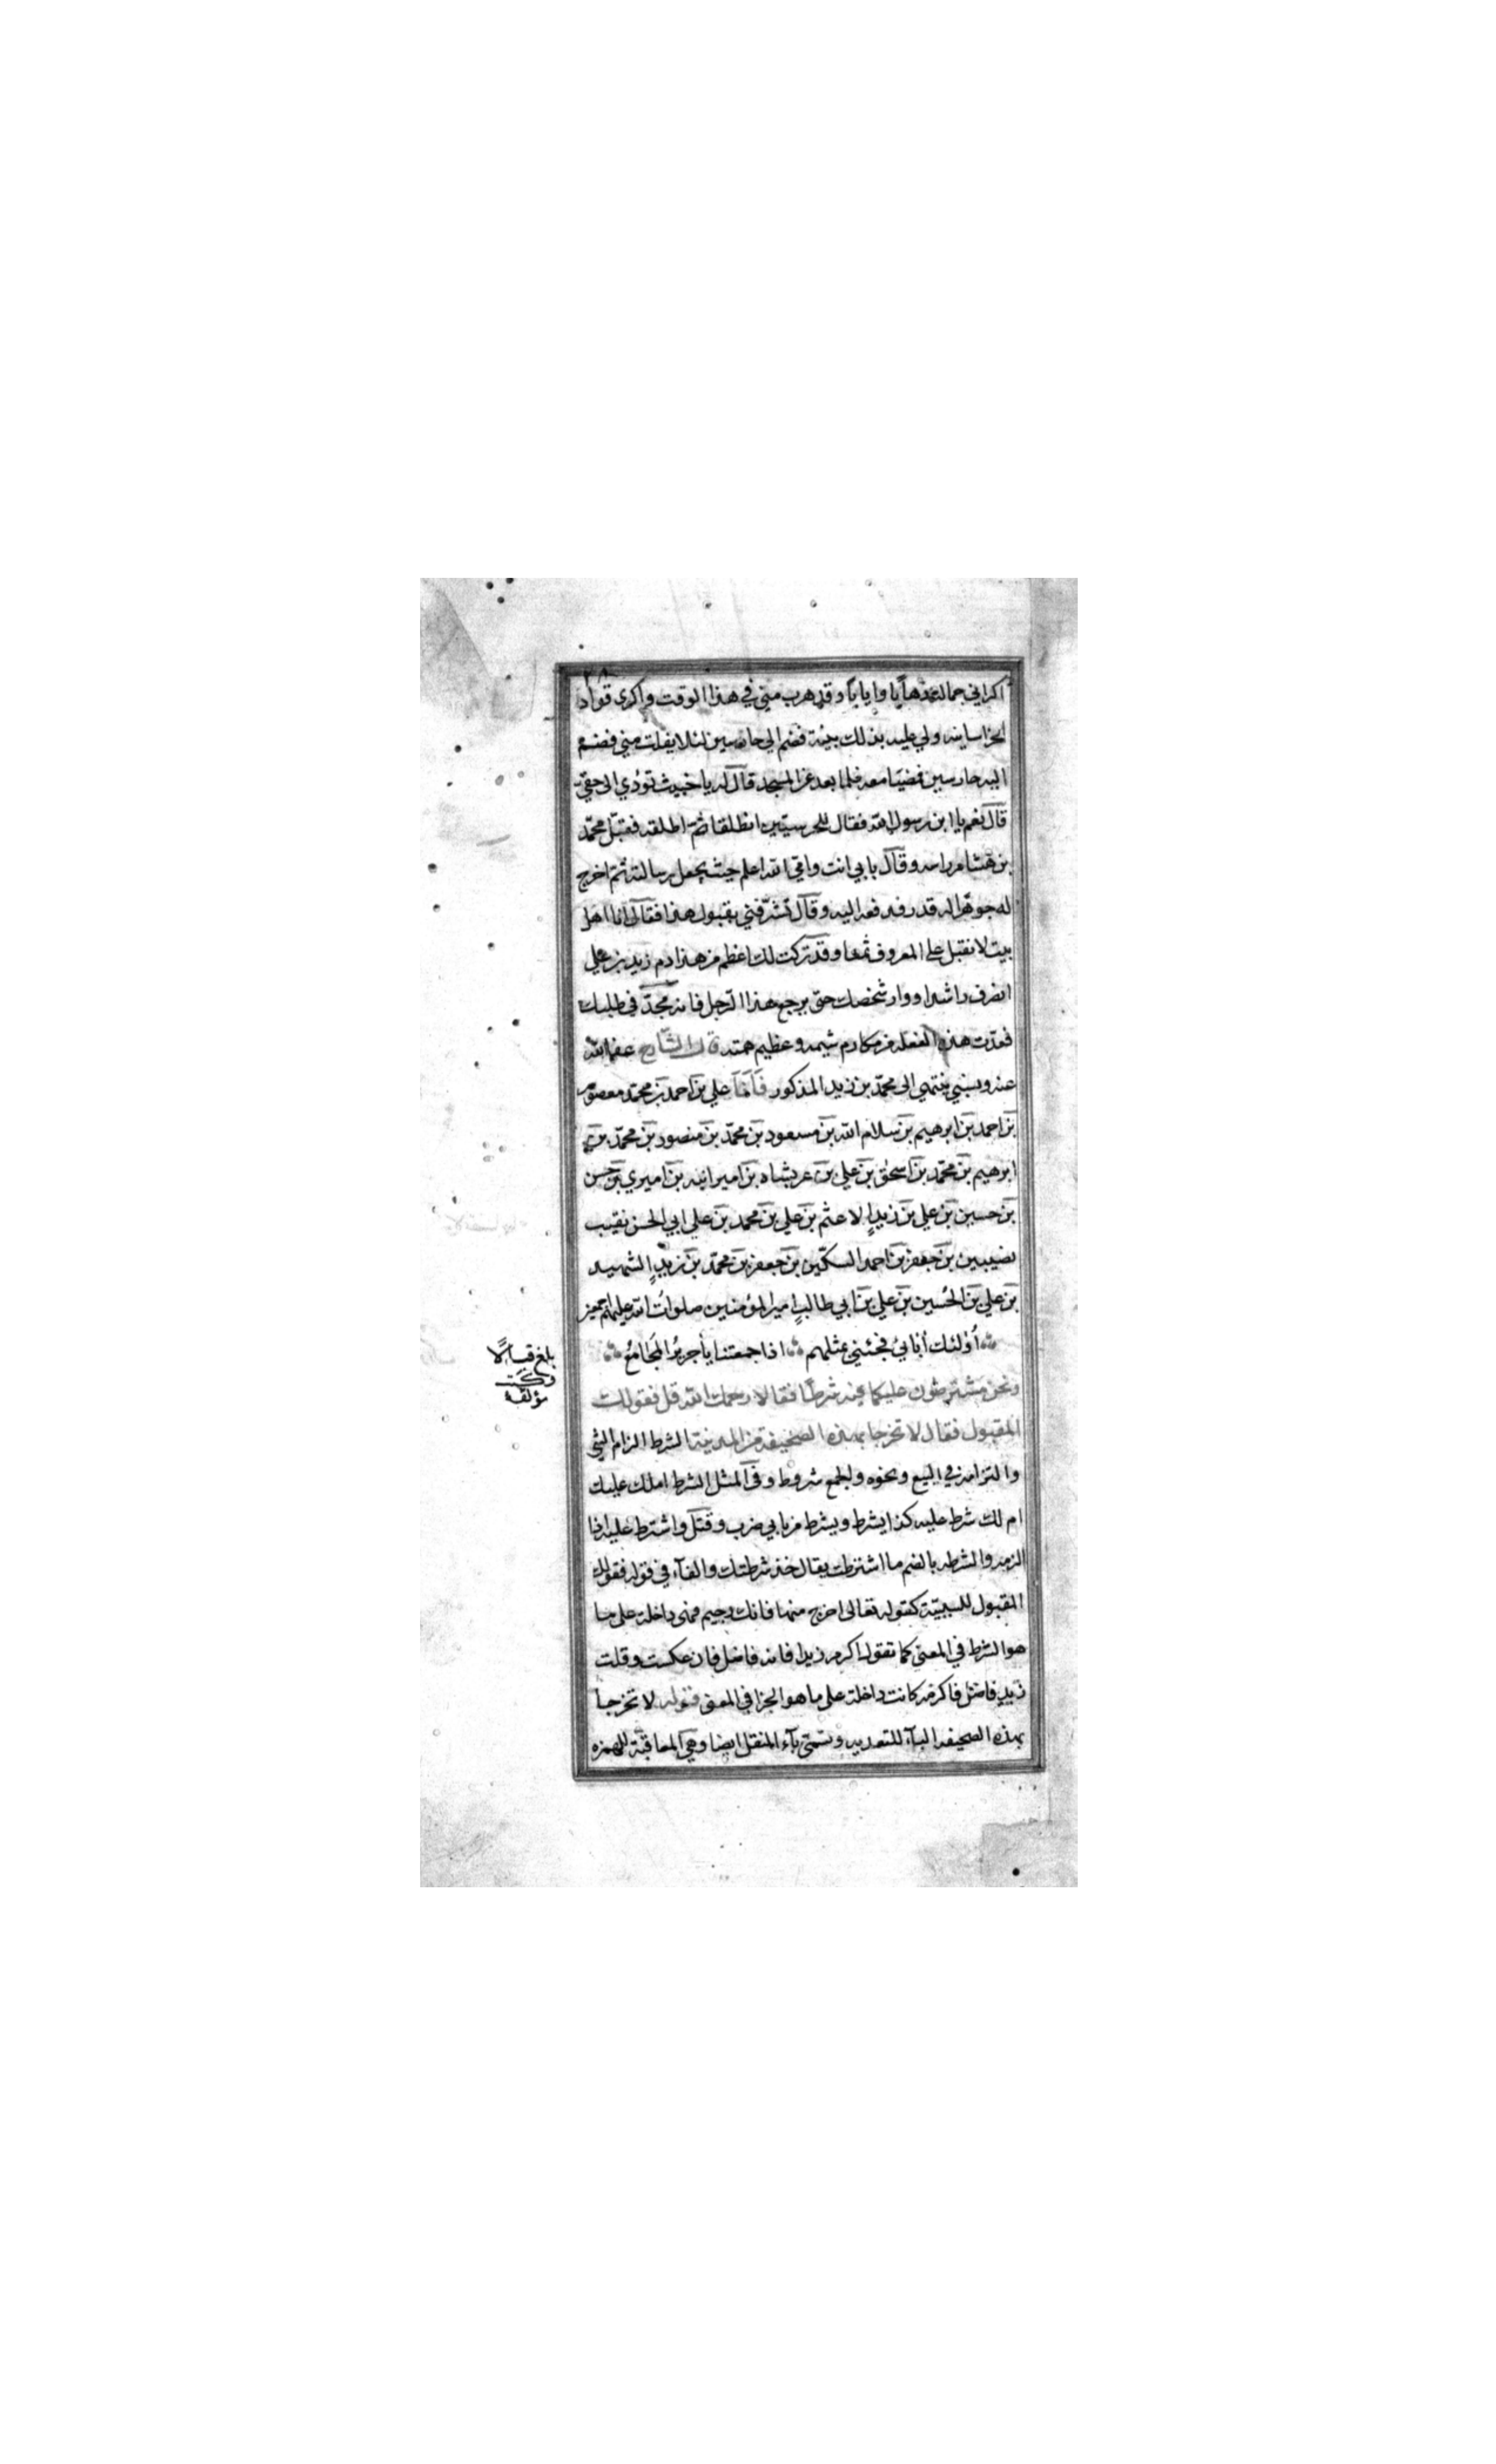 اكراني جماله ذهابا وايابا وقد هرب مني في هذا الوقت واكرى قواد
الخراسانيه ولي عليه بذلك بينة فضم الي حارسين لئلا يفلت مني فضم
اليه حارسين فمضيا معه فلما بعد عن المسجد قال له يا خبيث تؤدي الى حقي
قال نعم يا ابن رسول الله فقال للحرسيين انطلقا ثم اطلقه فقبل محمد
بن هشام راسه وقال بابي انت وامي الله اعلم حيث يجعل رسالته ثم اخرج
له جوهرا له قدر فدفعه اليه وقال تشرفني بقبول هذا فقال انا اهل
بيت لا نقبل على المعروف ثمنا وقد تركت لك اعظم من هذا دم زيد بن علي
انصرف راشدا ووار شخصك حتى يرجع هذا الرجل فانه مجد في طلبك
فعدت هذه الفعله من مكارم شيمه وعظيم همته قال الشارح عفا الله
عنه ونسبي ينتهي الى محمد بن زيد المذكور فانا علي بن احمد بن محمد معصوم
بن احمد بن ابرهيم بن سلام الله بن مسعود بن محمد بن منصور بن محمد بن
ابرهيم بن محمد بن اسحق بن علي بن عربشاه بن اميرانبه بن اميري بن حسن
بن حسين بن علي بن زيد الاعثم بن علي بن محمد بن علي ابي الحسن نقيب
نصيبين بن جعفر بن احمد السكين بن جعفر بن محمد بن زيد الشهيد
بن علي بن الحسين بن علي بن ابي طالب امير المؤمنين صلوات الله عليهم اجمعين
أولئك أبائي فجئني بمثلهم اذا جمعتنا يا جرير المجامع
ونحن مشترطون عليكما فيه شرطا فقالا رحمك الله قل فقولك
المقبول فقال لا تخرجا بهذه الصحيفة من المدينة الشرط الزام الشي
والتزامه في البيع ونحوه والجمع شروط وفي المثل الشرط املك عليك
ام لك شرط عليه كذا يشرط ويشرط من بابي ضرب وقتل واشترط عليه اذا
الزمه والشرطه بالضم ما اشترطت يقال خذ شرطتك والفآء في قوله فقولك
المقبول للسببية كقوله تعالى اخرج منها فانك رجيم فهي داخلة على ما
هو الشرط في المعنى كما تقول اكرم زيدا فانه فاضل فان عكست وقلت
زيد فاضل فاكرمه كانت داخلة على ما هو الجزا في المعنى قوله لا تخرجا
بهذه الصحيفه البآء للتعديه وتسمى بآء النقل ايضا وهي المعاقبة للهمزه
بلغ قبالا
وكتب
مؤلفه